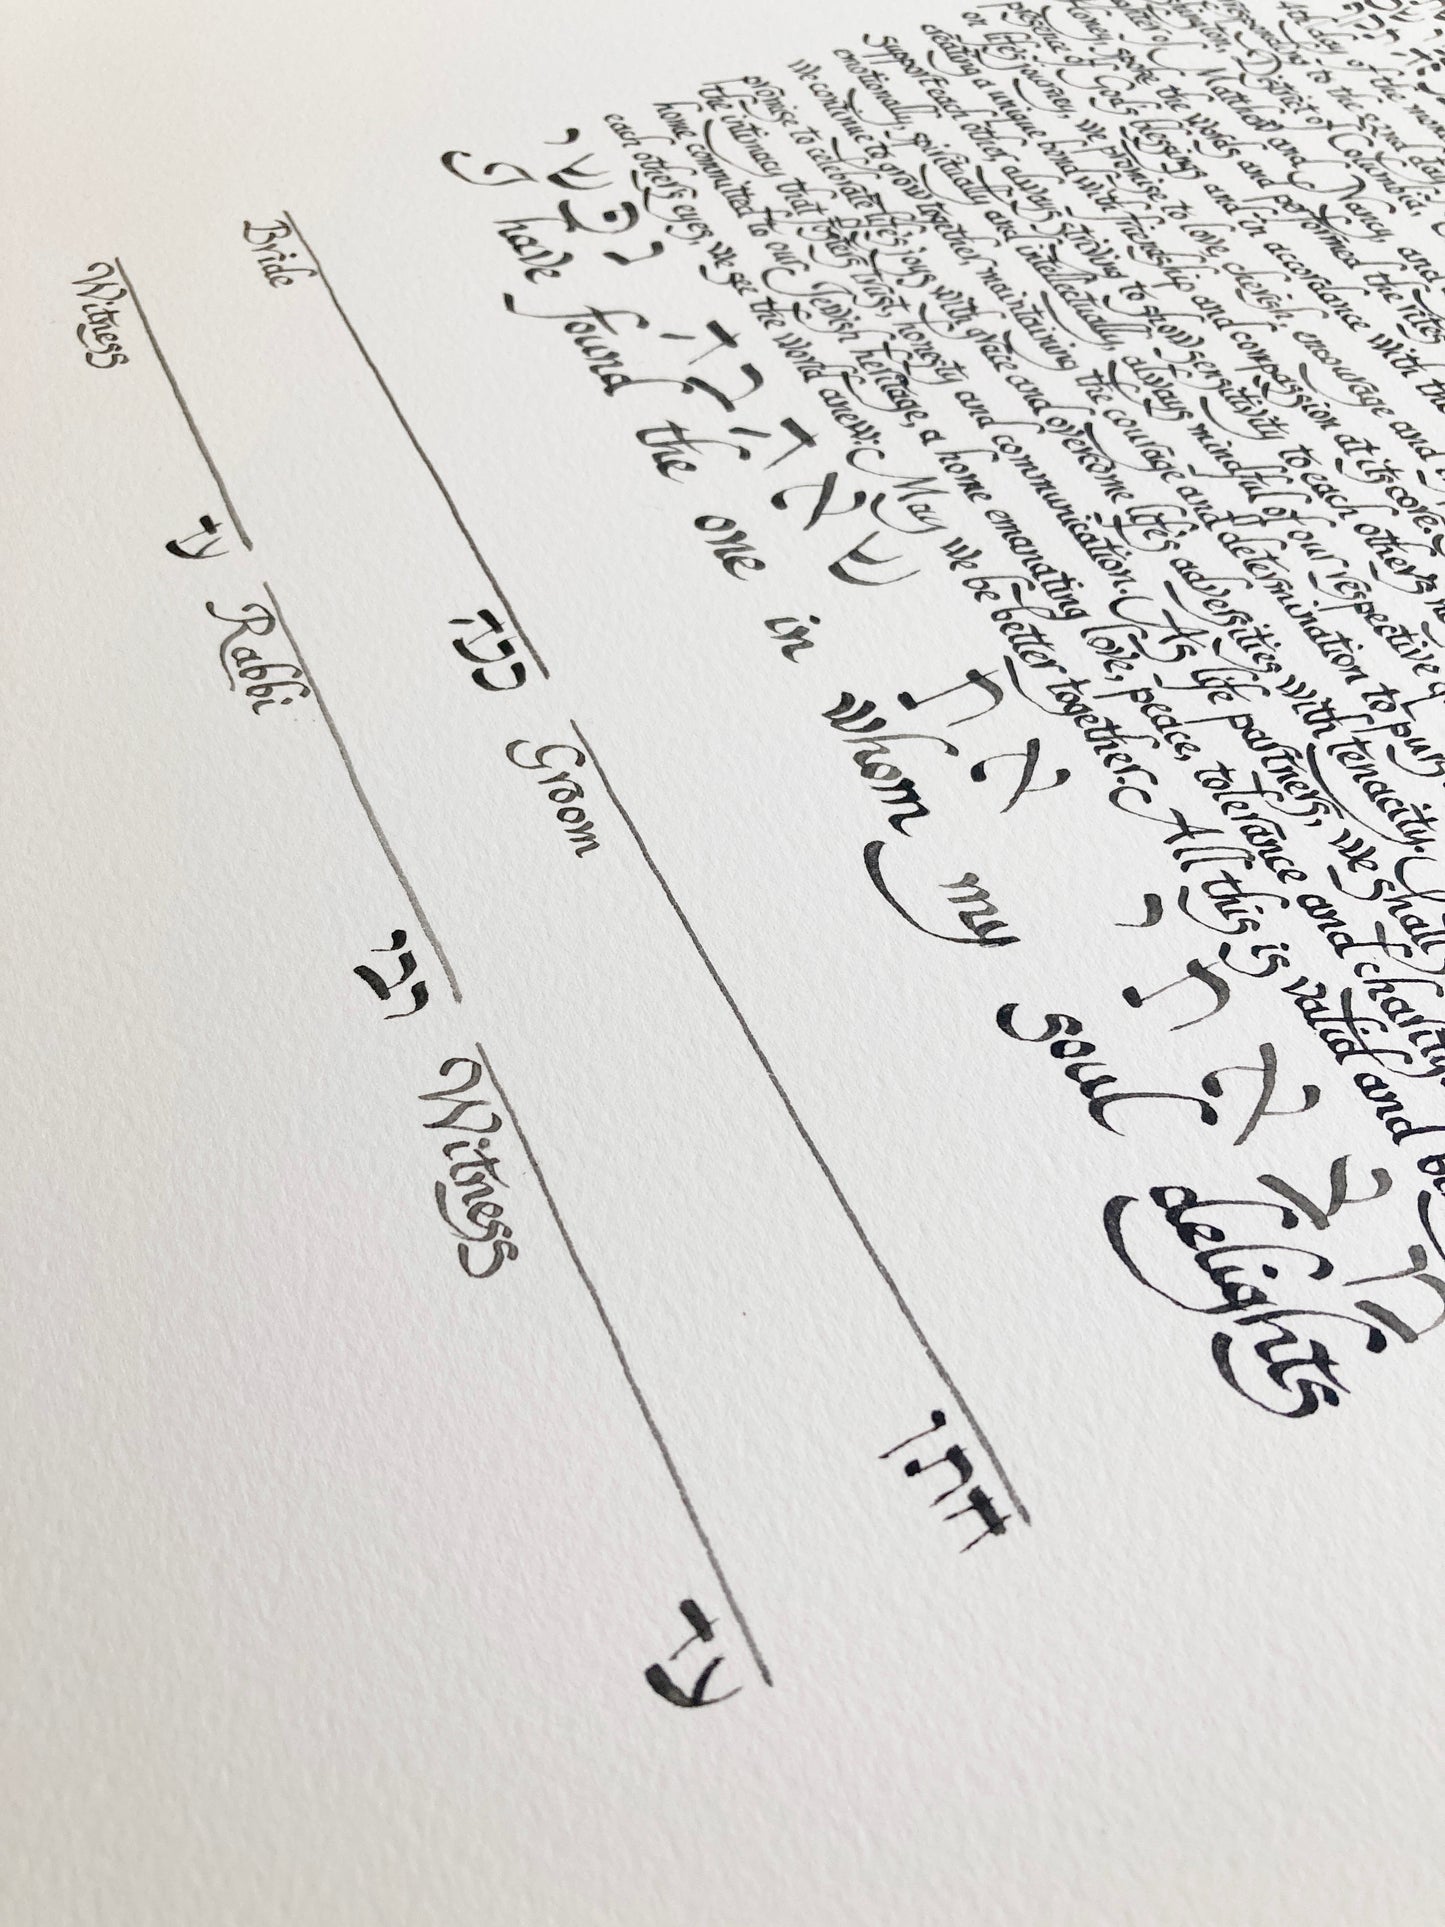 4th day of the
to the 22nd day
District of Columbia,
of Matthew and Nancy, and
Honey, spoke the words and performed the rites
presence of God's blessing and in accordance with the
on life's journey, we promise to love, cherish, encourage and
creating a unique bond with friendship and compassion at its core.
support each other, always striving to show sensitivity to each other's
emotionally, spiritually and intellectually, always mindful of our respective
we continue to grow together, maintaining the courage and determination to
promise to celebrate life's joys with grace and overcome life's adversities with tenacity.
the intimacy that fosters trust, honesty and communication. As life partners, we shall
home committed to our Jewish heritage, a home emanating love, peace, tolerance and charity.
each other's eyes, we see the world anew. May we be better together. All this is valid and
מצאתי את שאהבה נפשי
I have found the one in whom my soul delights
Bride כלה Groom חתן
Witness עד Rabbi רבי Witness עד